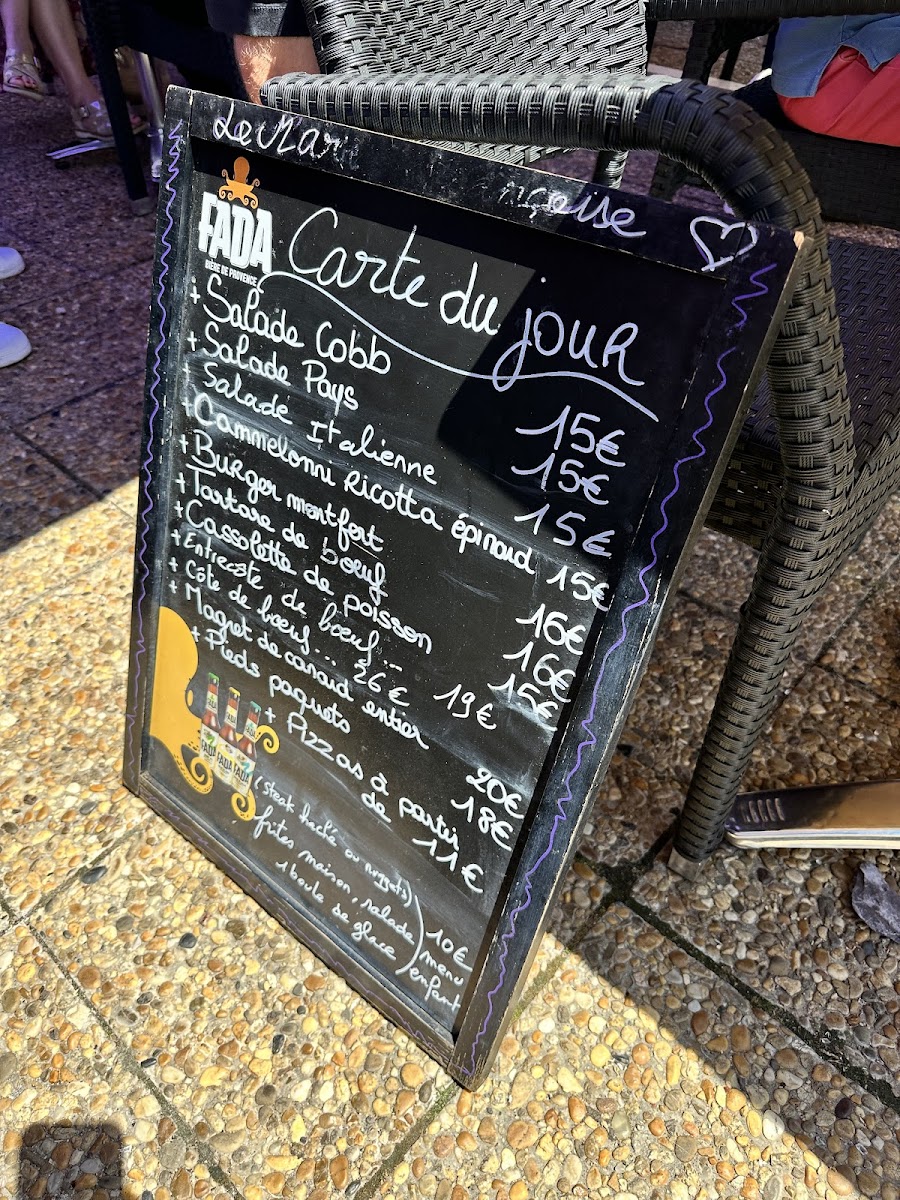 Le Mar
FADA
BIÈRE DE PROVENCE
Carte du jour
+ Salade Cobb 15€
+ Salade Pays 15€
+ Salade Italienne 15€
+ Cammelonni Ricotta épinard 15€
+ Burger montfort 16€
+ Tartare de bœuf 16€
+ Cassolette de poisson 15€
+ Entrecôte de bœuf... 19€
+ Côte de bœuf... 26€
+ Magret de canard entier 20€
+ Pieds paquets 18€
+ Pizzas à partir
de 11€
(steak haché ou nuggets)
frites maison, salade
1 boule de glace
10€
menu
enfant
FADA FADA FADA